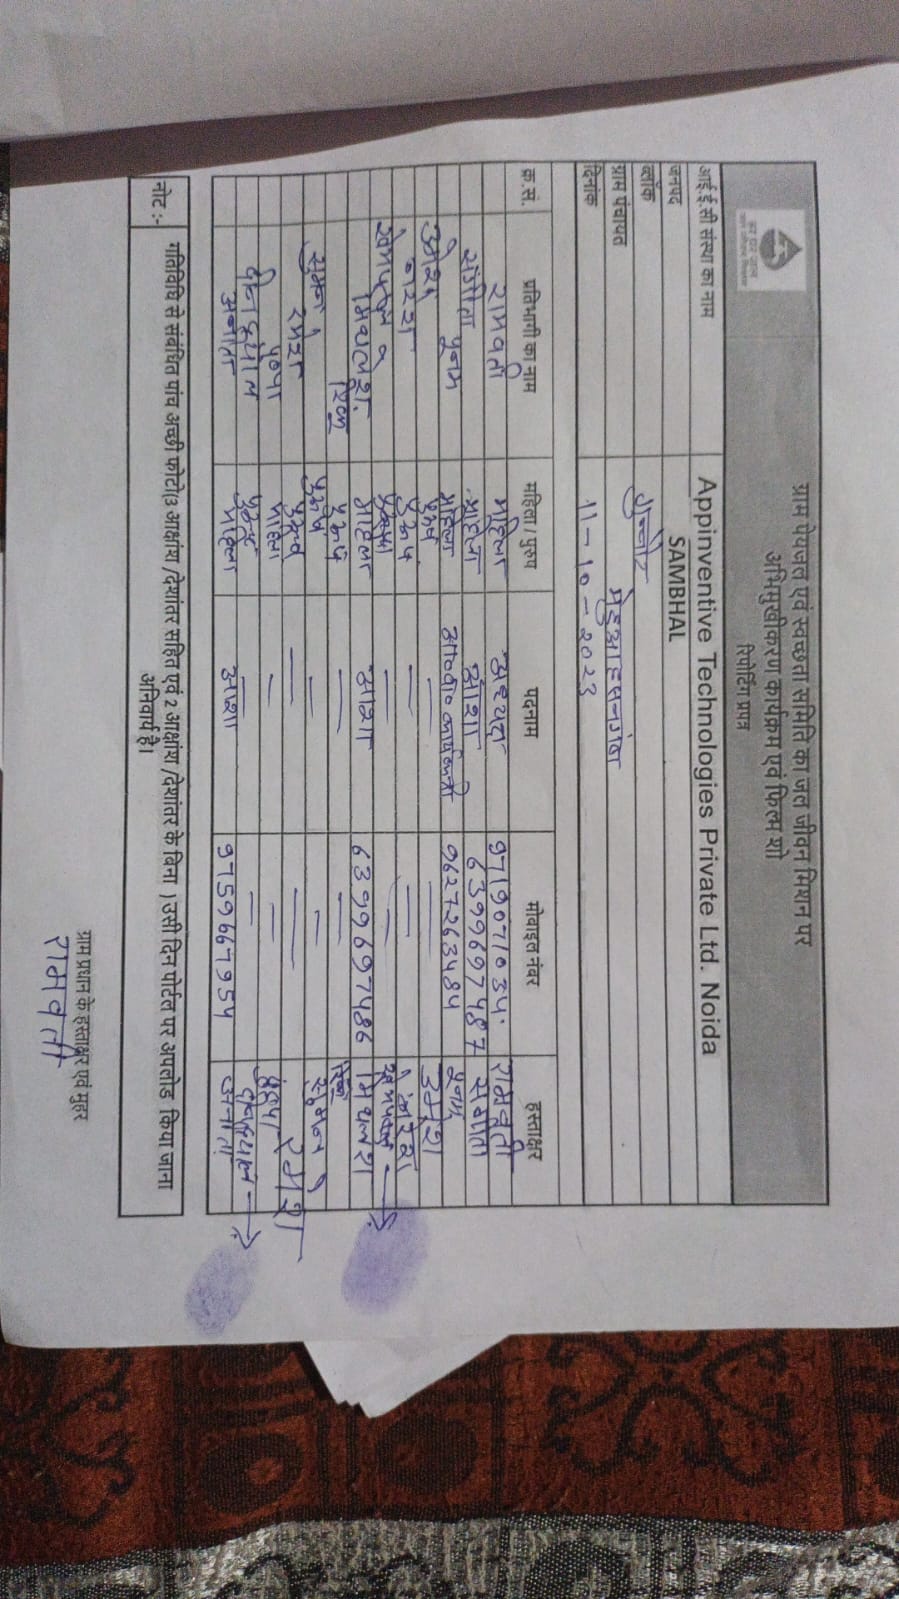 हर घर जल
जल जीवन मिशन
ग्राम पेयजल एवं स्वच्छता समिति का जल जीवन मिशन पर
अभिमुखीकरण कार्यक्रम एवं फिल्म शो
रिपोर्टिंग प्रपत्र
आई.ई.सी संस्था का नाम Appinventive Technologies Private Ltd. Noida
जनपद SAMBHAL
ब्लॉक गुन्नौर
ग्राम पंचायत
दिनांक 11-10-2023
क्र.सं. प्रतिभागी का नाम महिला / पुरुष पदनाम मोबाइल नंबर हस्ताक्षर
रामवती महिला 9719071034 रामवती
संगीता महिला आशा 6399697487
पूनम महिला आ०वा० कार्यकत्री 9627263484 पूनम
पुरुष —
नरेश पुरुष — —
पुरुष — —
मिथलेश महिला आशा 6399697486 मिथलेश
रिंकू पुरुष — — रिंकू
सुमन पुरुष — — सुमन
रमेश पुरुष — — रमेश
पुष्पा महिला — — पुष्पा
पुरुष — —
अनीता महिला आशा 9759667954 अनीता
नोट :- गतिविधि से संबंधित पांच अच्छी फोटो(3 आक्षांश /देशांतर सहित एवं 2 आक्षांश /देशांतर के बिना ) उसी दिन पोर्टल पर अपलोड किया जाना
अनिवार्य है।
ग्राम प्रधान के हस्ताक्षर एवं मुहर
रामवती